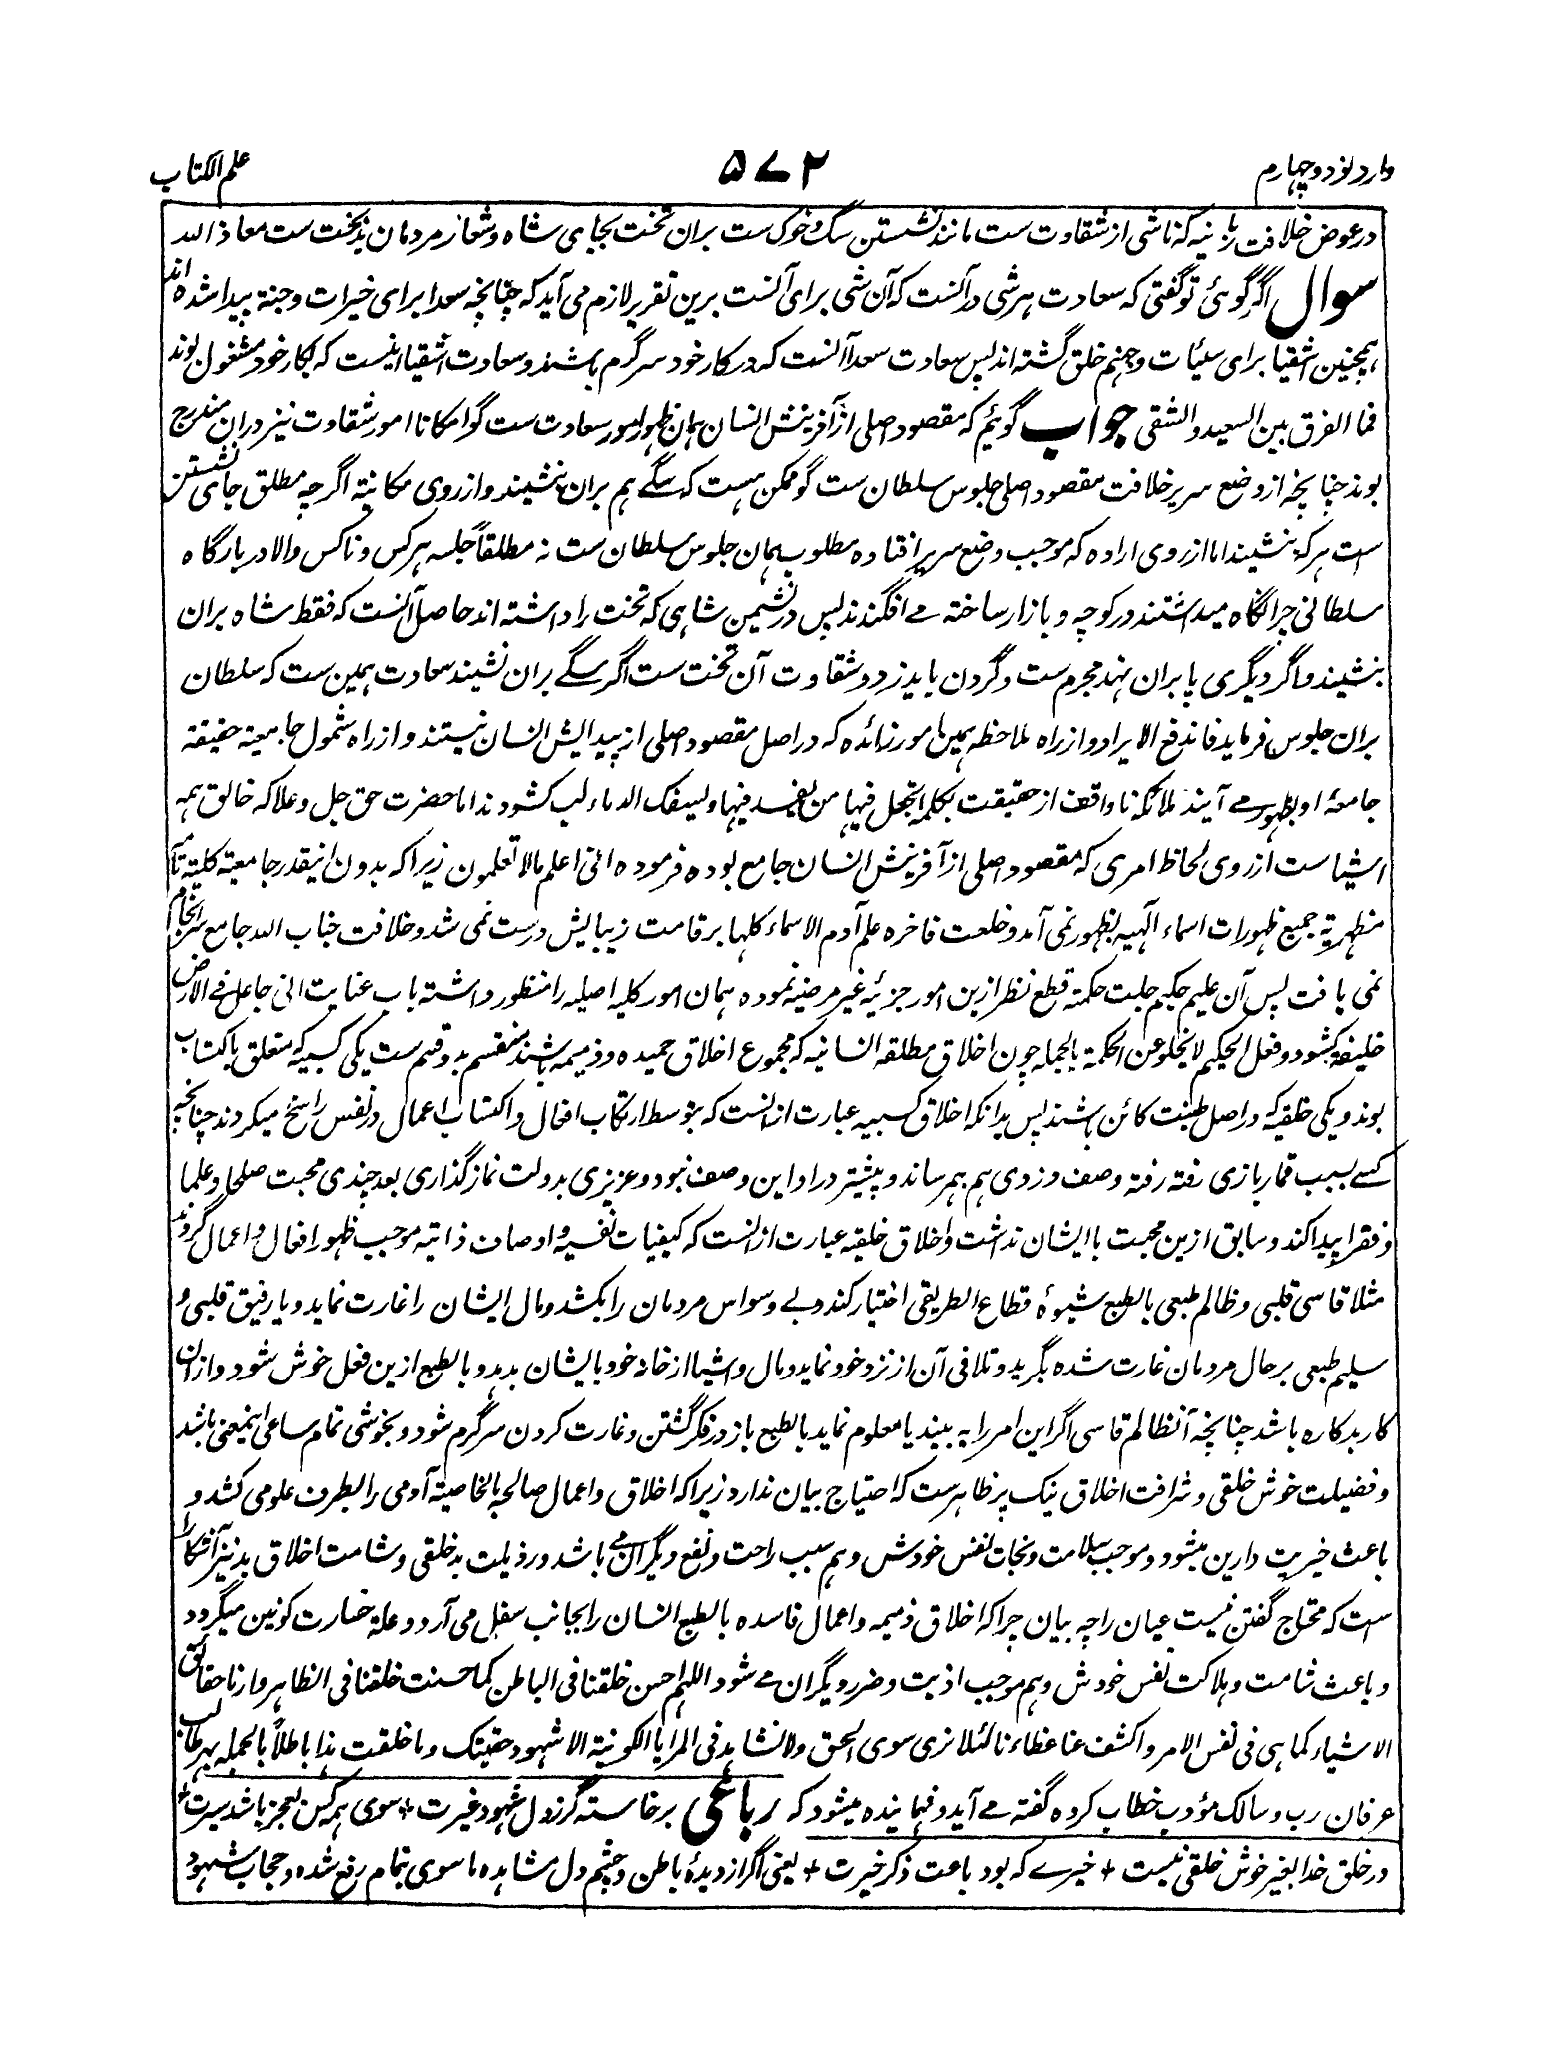 وارد نود و چهارم
۵۷۲
علم الکتاب
در عوض خلافت ربانیه که ناشی از شقاوت ست مانند نشستن سگ و خوک ست بران تخت بجای شاه و شعار مردمان بدبخت ست معاذ الله
سوال اگر گوئی تو گفتی که سعادت هر شی در آنست که آن شی برای آنست برین تقریر لازم می آید که چنانچه سعدا برای خیرات و جنة پیدا شده اند
همچنین اشقیا برای سئیات و جهنم خلق گشته اند پس سعادت سعدا آنست که در کار خود سرگرم باشند و سعادت اشقیا اینست که بکار خود مشغول بوند
فما الفرق بین السعید و الشقی جواب گوئیم که مقصود اصلی از آفرینش انسان همان ظهور امور سعادت ست گو امکانا امور شقاوت نیز دران مندرج
بوند چنانچه از وضع سریر خلافت مقصود اصلی جلوس سلطان ست گو ممکن هست که سگے هم بران بنشیند و از روی مکانیة اگرچه مطلق جای نشستن
است هر که بنشیند اما از روی اراده که موجب وضع سریر افتاده مطلوب همان جلوس سلطان ست نه مطلقاً جلسه هر کس و ناکس والا دربارگاه
سلطانی چرا نگاه میداشتند در کوچه و بازار ساخته مے افگندند پس در نشیمن شاهی که تخت را داشته اند حاصل آنست که فقط شاه بران
بنشیند و اگر دیگری پا بران نهد مجرم ست و گردن باید زد و شقاوت آن تخت ست اگر سگے بران نشیند سعادت همین ست که سلطان
بران جلوس فرماید فاندفع الایراد و از راه ملاحظه همین امور زائده که در اصل مقصود اصلی از پیدایش انسان نیستند و از راه شمول جامعیة حقیقة
جامعهٔ او بظهور مے آیند ملائکه ناواقف از حقیقت بکلمه اتجعل فیها من یفسد فیها و یسفک الدماء لب کشودند اما حضرت حق جل و علا که خالق همه
اشیا ست از روی لحاظ امری که مقصود اصلی از آفرینش انسان جامع بوده فرموده انی اعلم مالا تعلمون زیرا که بدون اینقدر جامعیة کلیة تامه
مظهریة جمیع ظهورات اسماء آلهیه بظهور نمی آمد و خلعت فاخره علم آدم الاسماء کلها بر قامت زیبایش درست نمی شد و خلافت جناب الله جامع سرانجام
نمی یافت پس آن علیم حکیم جلت حکمة قطع نظر ازین امور جزئیه غیر مرضیه نموده همان امور کلیه اصلیه را منظور داشته باب عنایت انی جاعل فے الارض
خلیفة کشود و فعل الحکیم لا یخلو عن الحکمة بالجمله چون اخلاق مطلقه انسانیه که مجموع اخلاق حمیده و ذمیمه باشند منقسم بدو قسم ست یکی کسبیه که متعلق باکتساب
بوند و یکی خلقیه که در اصل طینت کائن باشند پس بدانکه اخلاق کسبیه عبارت ازانست که بتوسط ارتکاب افعال و اکتساب اعمال در نفس راسخ میگردند چنانچه
کسے بسبب قمار بازی رفته رفته وصف دزدی هم بهم رساند و پیشتر در او این وصف نبود و عزیزی بدولت نماز گذاری بعد چندی محبت صلحا و علما
و فقرا پیدا کند و سابق ازین محبت باایشان نداشت و اخلاق خلقیه عبارت ازانست که کیفیات نفسیه و اوصاف ذاتیه موجب ظهور افعال و اعمال گردند
مثلا قاسی قلبی و ظالم طبعی بالطبع شیوهٔ قطاع الطریقی اختیار کند و بے وسواس مردمان را بکشد و مال ایشان را غارت نماید و یا رفیق قلبی و
سلیم طبعی بر حال مردمان غارت شده بگرید و تلافی آن از نزد خود نماید و مال و اشیا از خانه خود بایشان بدهد و بالطبع ازین فعل خوش شود و ازان
کار بدکاره باشد چنانچه آنظالم قاسی اگر این امر را به بیند یا معلوم نماید بالطبع باز در فکر کشتن و غارت کردن سرگرم شود و بخوشی تمام ساعی اینمعنی باشد
و فضیلت خوش خلقی و شرافت اخلاق نیک پر ظاهر ست که احتیاج بیان ندارد زیرا که اخلاق و اعمال صالحه بالخاصیة آدمی را بطرف علو می کشد و
باعث خیریت دارین میشود و موجب سلامت و نجات نفس خودش و هم سبب راحت و نفع دیگران مے باشد و رذیلت بد خلقی و شامت اخلاق بد نیز آشکارا
است که محتاج گفتن نیست عیان را چه بیان چرا که اخلاق ذمیمه و اعمال فاسده بالطبع انسان را بجانب سفل می آرد و علة خسارت کونین میگردد
و باعث شامت و هلاکت نفس خودش و هم موجب اذیت و ضرر دیگران مے شود اللهم احسن خلقنا فی الباطن کما حسنت خلقنا فی الظاهر و ارنا حقائق
الاشیاء کما هی فی نفس الامر و اکشف عنا غطاءنا لئلا نری سوی الحق ولا نشاهد فی المرایا الکونیة الا شهود حقیتک و ما خلقت هذا باطلاً بالجمله بهر طالب
عرفان رب و سالک مؤدب خطاب کرده گفته مے آید و فهمانیده میشود که رباعی برخاسته گرز دل شهود غیرت + سوی همه کس بعجز باشد سیرت +
در خلق خدا بغیر خوش خلقی نیست + خیرے که بود باعث ذکر خیرت + یعنی اگر از دیدهٔ باطن و چشم دل مشاهده ماسوی بتمام رفع شده و حجاب شهود